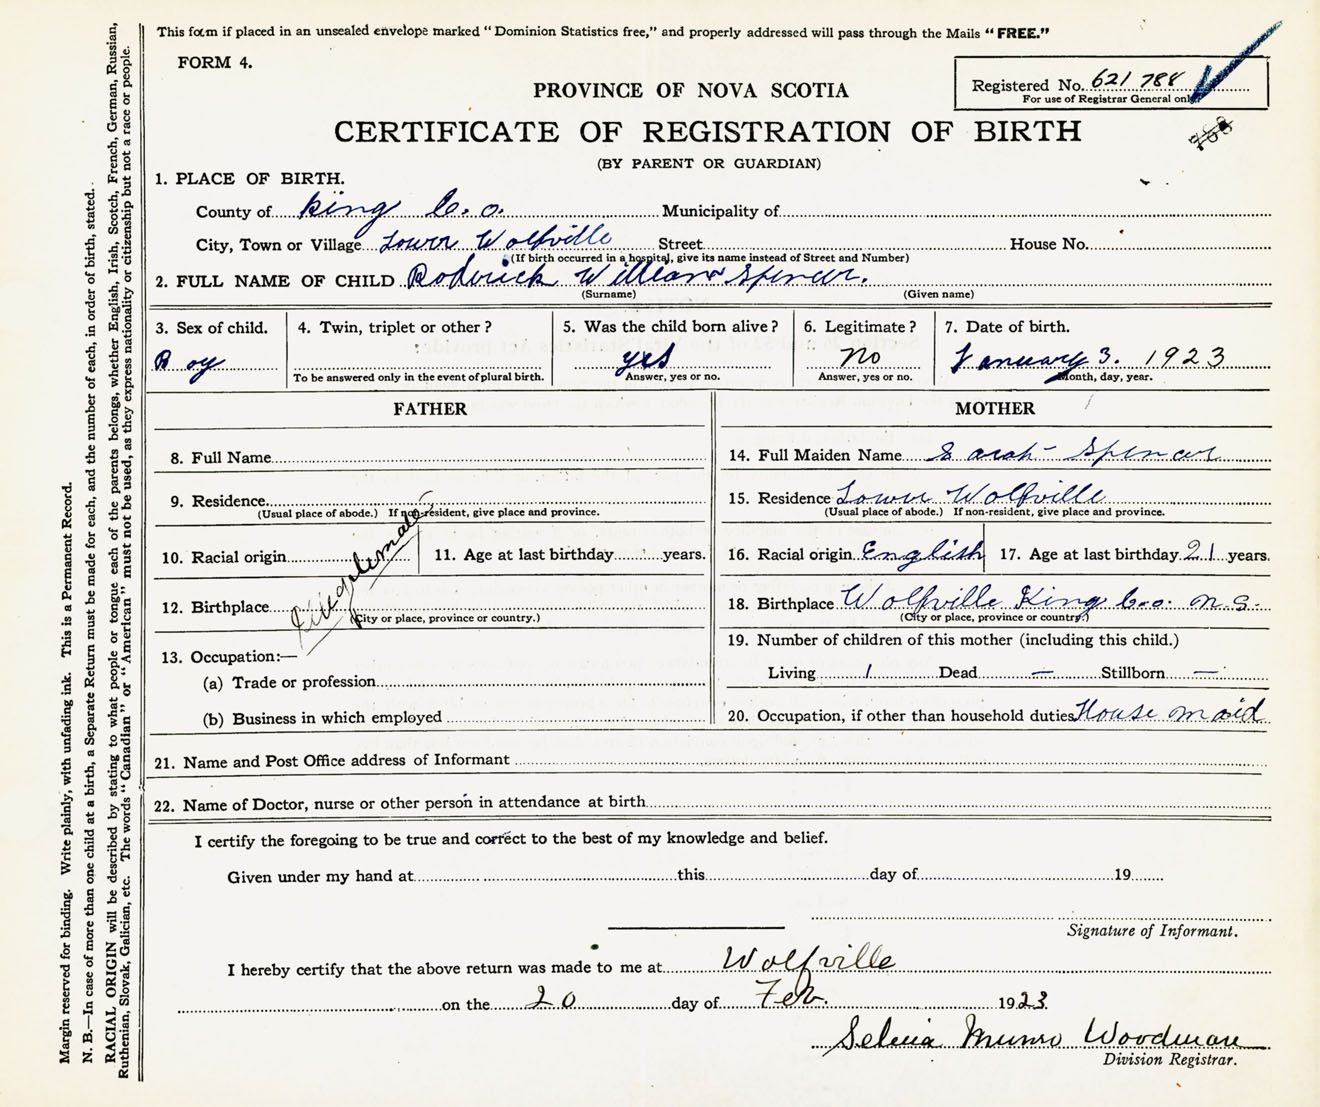 This form if placed in an unsealed envelope marked "Dominion Statistics free," and properly addressed will pass through the Mails "FREE."
FORM 4.
Registered No. 621 788
For use of Registrar General only.
PROVINCE OF NOVA SCOTIA
CERTIFICATE OF REGISTRATION OF BIRTH
788
(BY PARENT OR GUARDIAN)
1. PLACE OF BIRTH.
County of King Co. Municipality of
City, Town or Village Lower Wolfville Street House No.
(If birth occurred in a hospital, give its name instead of Street and Number)
2. FULL NAME OF CHILD Roderick William Spencer.
(Surname) (Given name)
3. Sex of child. 4. Twin, triplet or other? 5. Was the child born alive? 6. Legitimate? 7. Date of birth.
Boy yes no January 3. 1923
To be answered only in the event of plural birth. Answer, yes or no. Answer, yes or no. Month, day, year.
FATHER MOTHER
8. Full Name 14. Full Maiden Name Sarah Spencer
9. Residence 15. Residence Lower Wolfville
(Usual place of abode.) If non-resident, give place and province. (Usual place of abode.) If non-resident, give place and province.
10. Racial origin 11. Age at last birthday years. 16. Racial origin English 17. Age at last birthday 21 years.
Illegitimate
12. Birthplace 18. Birthplace Wolfville King Co. N.S.
(City or place, province or country.) (City or place, province or country.)
13. Occupation:— 19. Number of children of this mother (including this child.)
(a) Trade or profession Living 1 Dead — Stillborn —
(b) Business in which employed 20. Occupation, if other than household duties House maid
21. Name and Post Office address of Informant
22. Name of Doctor, nurse or other person in attendance at birth
I certify the foregoing to be true and correct to the best of my knowledge and belief.
Given under my hand at this day of 19
Signature of Informant.
I hereby certify that the above return was made to me at Wolfville
on the 20 day of Feb. 1923.
Selina Munro Woodman
Division Registrar.
Margin reserved for binding. Write plainly, with unfading ink. This is a Permanent Record.
N. B.—In case of more than one child at a birth, a Separate Return must be made for each, and the number of each, in order of birth, stated.
RACIAL ORIGIN will be described by stating to what people or tongue each of the parents belongs, whether English, Irish, Scotch, French, German, Russian,
Ruthenian, Slovak, Galician, etc. The words "Canadian" or "American" must not be used, as they express nationality or citizenship but not a race or people.